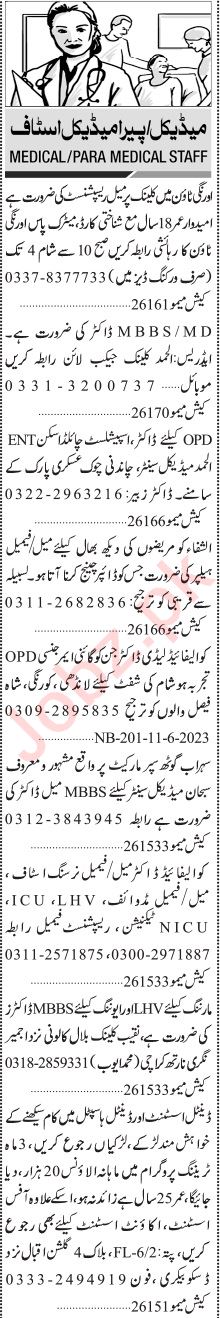 میڈیکل/پیرامیڈیکل اسٹاف
MEDICAL/PARA MEDICAL STAFF
اورنگی ٹاؤن میں کلینک پر میل ریسپشنسٹ کی ضرورت ہے
امیدوار عمر 18 سال مع شناختی کارڈ، میٹرک پاس اورنگی
ٹاؤن کا رہائشی رابطہ کریں صبح 10 سے شام 4 تک
(صرف ورکنگ ڈیز میں) 0337-8377733
کیش میمو 26161
MBBS/MD ڈاکٹر کی ضرورت ہے۔
ایڈریس: الحمد کلینک جیکب لائن رابطہ کریں
موبائل ..... 0331-3200737
کیش میمو 26170
OPD کیلئے ڈاکٹر، اسپیشلسٹ چائلڈ اسکن ENT
الحمد میڈیکل سینٹر، چاندنی چوک عسکری پارک کے
سامنے۔ ڈاکٹر زبیر: 0322-2963216
کیش میمو 26166
الشفاء کو مریضوں کی دیکھ بھال کیلئے میل/فیمیل
ہیلپر کی ضرورت جس کو ڈائپر چینج کرنا آتا ہو۔ لسبیلہ
سے قریبی کو ترجیح: 0311-2682836
کیش میمو 26166
کوالیفائیڈ لیڈی ڈاکٹر جن کو گائنی ایمرجنسی OPD
تجربہ ہو شام کی شفٹ کیلئے لانڈھی، کورنگی، شاہ
فیصل والوں کو ترجیح 0309-2895835
NB-201-11-6-2023
سہراب گوٹھ سپر مارکیٹ پر واقع مشہور و معروف
سبحان میڈیکل سینٹر کیلئے MBBS میل ڈاکٹر کی
ضرورت ہے رابطہ 0312-3843945
کیش میمو 261533
کوالیفائیڈ ڈاکٹر میل/فیمیل نرسنگ اسٹاف،
میل/فیمیل مڈوائف، ICU، LHV،
NICU ٹیکنیشن، ریسپشنسٹ فیمیل رابطہ
0311-2571875، 0300-2971887
کیش میمو 261533
مارننگ کیلئے LHV اور ایوننگ کیلئے MBBS ڈاکٹرز
کی ضرورت ہے، نقیب کلینک بلال کالونی نزد اجمیر
نگری نارتھ کراچی (محمد ایوب) 0318-2859331
کیش میمو 261533
ڈینٹل اسسٹنٹ اور ڈینٹل ہاسپٹل میں کام سیکھنے کے
خواہش مند لڑکے، لڑکیاں رجوع کریں، 3 ماہ
ٹریننگ پروگرام میں ماہانہ الاؤنس 20 ہزار، دیا
جائیگا، عمر 25 سال سے زائد نہ ہو، اسکے علاوہ آفس
اسسٹنٹ، اکاؤنٹ اسسٹنٹ کیلئے بھی رجوع
کریں، پتہ: FL-6/2، بلاک 4 گلشن اقبال نزد
ڈسکو بیکری، فون 0333-2494919
کیش میمو 26151